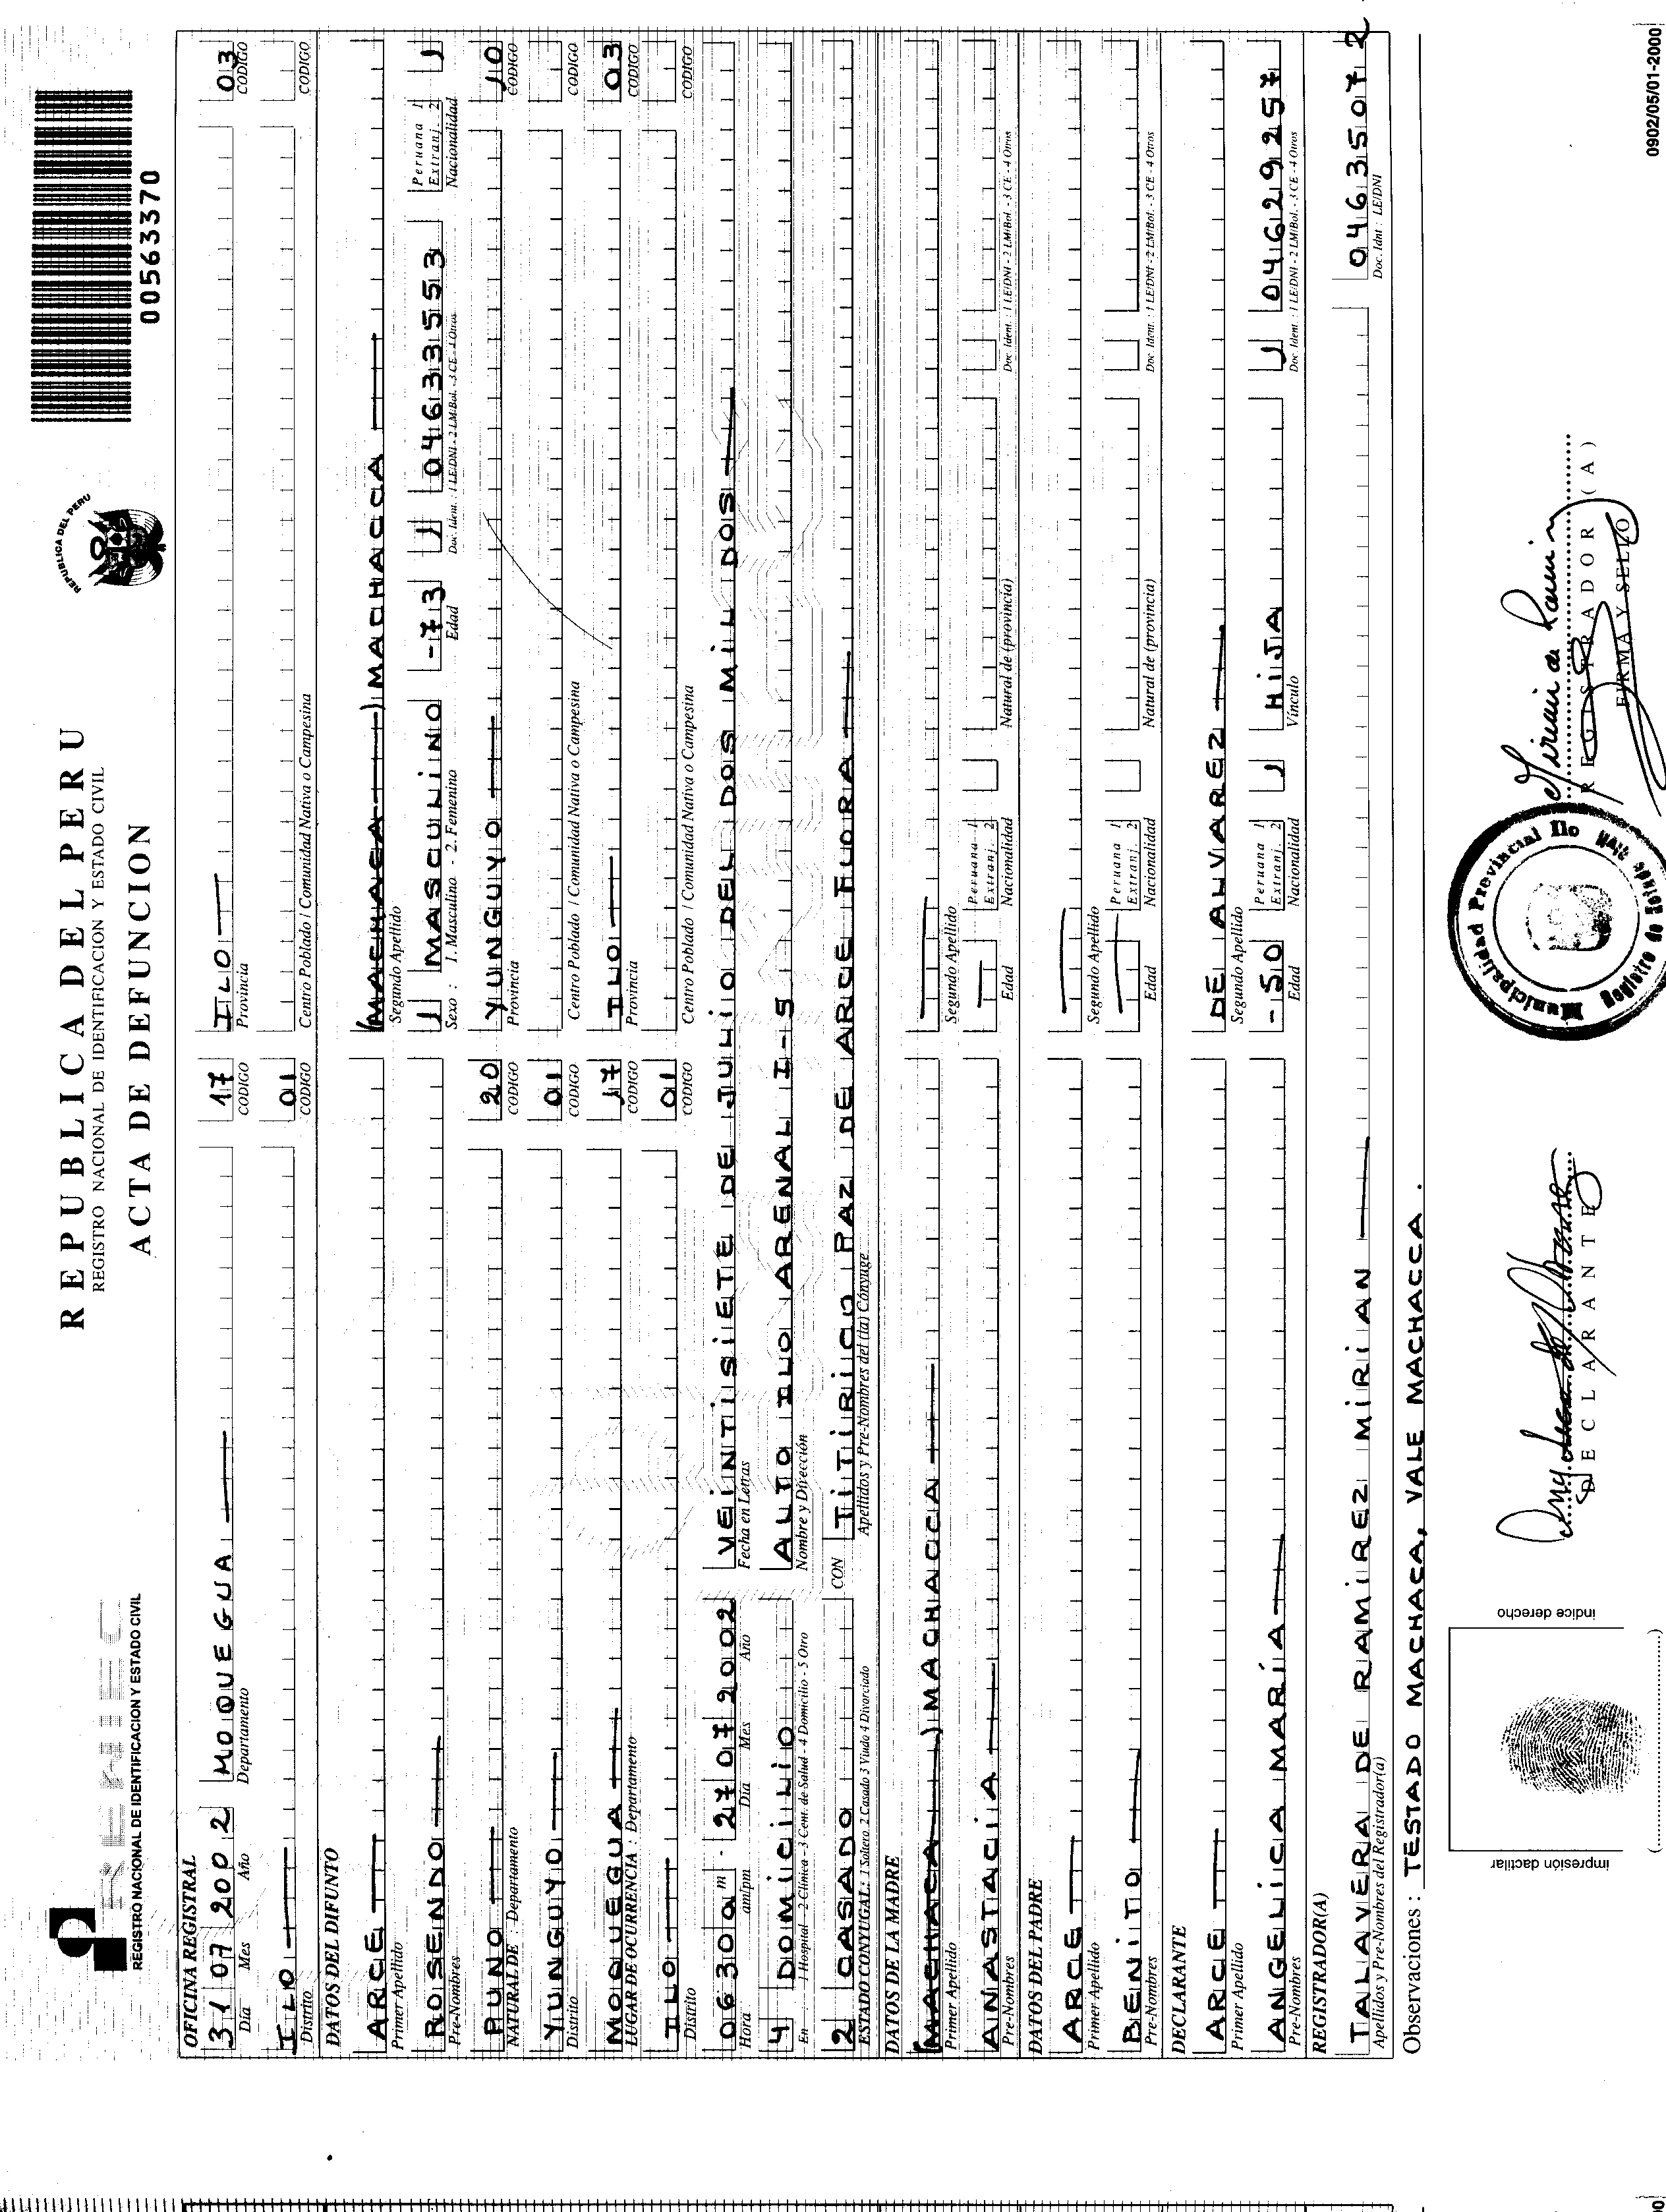 RENIEC
REGISTRO NACIONAL DE IDENTIFICACION Y ESTADO CIVIL
REPUBLICA DEL PERU
REGISTRO NACIONAL DE IDENTIFICACION Y ESTADO CIVIL
ACTA DE DEFUNCION
REPUBLICA DEL PERU
00563370
OFICINA REGISTRAL
31 07 2002 MOQUEGUA 17 ILO 03
Día Mes Año Departamento CODIGO Provincia CODIGO
ILO 01
Distrito CODIGO Centro Poblado / Comunidad Nativa o Campesina CODIGO
DATOS DEL DIFUNTO
ARCE (MACHACA) MACHACCA
Primer Apellido Segundo Apellido
ROSENDO 1 MASCULINO -73 1 04633553 Peruana 1 Extranj. 2 1
Pre-Nombres Sexo : 1. Masculino - 2. Femenino Edad Doc. Ident. : 1 LE/DNI - 2 LM/Bol. - 3 CE - 4 Otros Nacionalidad
PUNO 20 YUNGUYO 10
NATURAL DE Departamento CODIGO Provincia CODIGO
YUNGUYO 01
Distito CODIGO Centro Poblado / Comunidad Nativa o Campesina CODIGO
MOQUEGUA 17 ILO 03
LUGAR DE OCURRENCIA : Departamento CODIGO Provincia CODIGO
ILO 01
Distrito CODIGO Centro Poblado / Comunidad Nativa o Campesina CODIGO
06 30 a m. 27 07 2002 VEINTISIETE DE JULIO DEL DOS MIL DOS
Hora am/pm Día Mes Año Fecha en Letras
4 DOMICILIO ALTO ILO ARENAL I-5
En 1 Hospital - 2 Clinica - 3 Cent. de Salud - 4 Domicilio - 5 Otro Nombre y Dirección
2 CASADO CON TITIRICO PAZ DE ARCE FLORA
ESTADO CONYUGAL: 1 Soltero, 2 Casado 3 Viudo 4 Divorciado Apellidos y Pre-Nombres del (la) Cónyuge
DATOS DE LA MADRE
(MACHACA) MACHACCA
Primer Apellido Segundo Apellido
ANASTACIA Peruana 1 Extranj. 2
Pre-Nombres Edad Nacionalidad Natural de (provincia) Doc. Ident. : 1 LE/DNI - 2 LM/Bol. - 3 CE - 4 Otros
DATOS DEL PADRE
ARCE
Primer Apellido Segundo Apellido
BENITO Peruana 1 Extranj. 2
Pre-Nombres Edad Nacionalidad Natural de (provincia) Doc. Ident. : 1 LE/DNI - 2 LM/Bol. - 3 CE - 4 Otros
DECLARANTE
ARCE DE ALVAREZ
Primer Apellido Segundo Apellido
ANGELICA MARÍA -50 Peruana 1 Extranj. 2 1 HIJA 1 04629257
Pre-Nombres Edad Nacionalidad Vínculo Doc. Ident. : 1 LE/DNI - 2 LM/Bol. - 3 CE - 4 Otros
REGISTRADOR(A)
TALAVERA DE RAMIREZ MIRIAN 04635072
Apellidos y Pre-Nombres del Registrador(a) Doc. Idnt : LE/DNI
Observaciones : TESTADO MACHACA, VALE MACHACCA.
impresión dactilar
indice derecho
DECLARANTE
Municipalidad Provincial Ilo
REGISTRADOR (A)
FIRMA Y SELLO
0902/05/01-2000